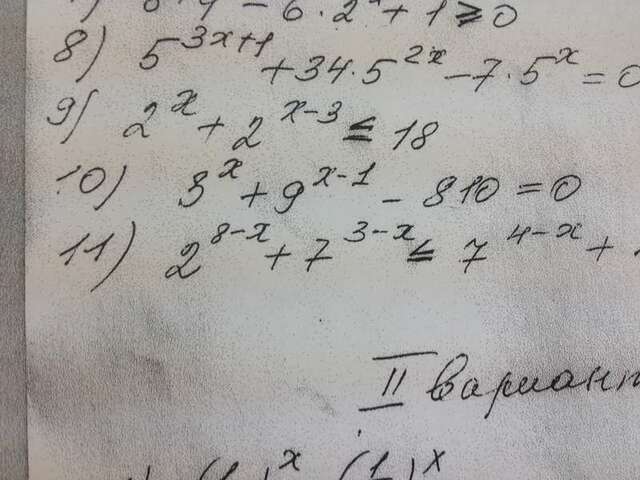 6 · 2 + 1 ≥ 0
8) 5^{3x+1} + 34 · 5^{2x} − 7 · 5^x = 0
9) 2^x + 2^{x−3} ≤ 18
10) 3^x + 9^{x−1} − 810 = 0
11) 2^{8−x} + 7^{3−x} ≤ 7^{4−x} +
II вариант